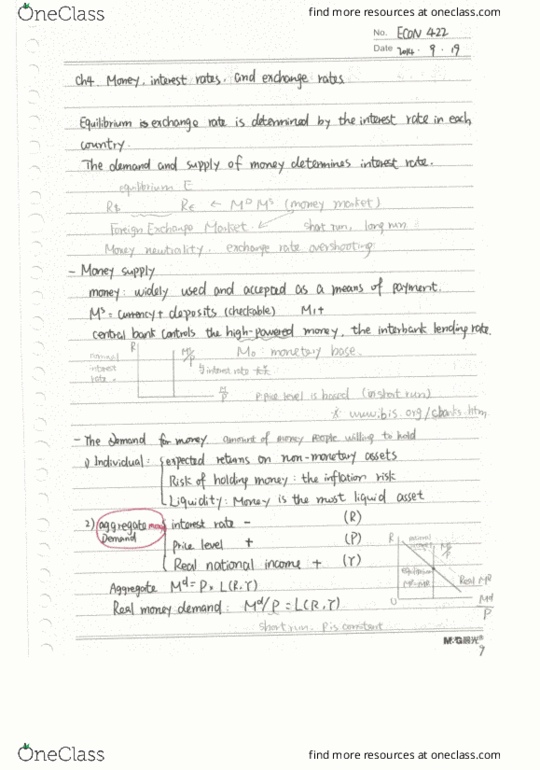 OneClass
find more resources at oneclass.com
No. ECON 422
Date 2014 · 9 · 19
Ch4. Money, interest rates, and exchange rates
Equilibrium is exchange rate is determined by the interest rate in each
country.
The demand and supply of money determines interest rate.
equilibrium E
R$ R€ ← M^D M^S (money market)
Foreign Exchange Market. short run, long run
Money neutrality. exchange rate overshooting
- Money supply
money: widely used and accepted as a means of payment.
M^S = currency + deposits (checkable) M1+
central bank controls the high-powered money, the interbank lending rate.
R M^S/P M0: monetary base.
nominal
interest
rate.
interest rate
M/P
P price level is based (in short run)
www.bis.org/cbanks.htm
- The demand for money amount of money people willing to hold
1) Individual: expected returns on non-monetary assets
Risk of holding money: the inflation risk
Liquidity: Money is the most liquid asset
2) aggregate money Demand interest rate - (R)
Price level + (P)
Real national income + (Y)
R
M^S/P
Real M^D
0
M^d/P
Aggregate M^d = P × L(R,Y)
Real money demand: M^d/P = L(R,Y)
short run. P is constant
M&G
9
OneClass
find more resources at oneclass.com